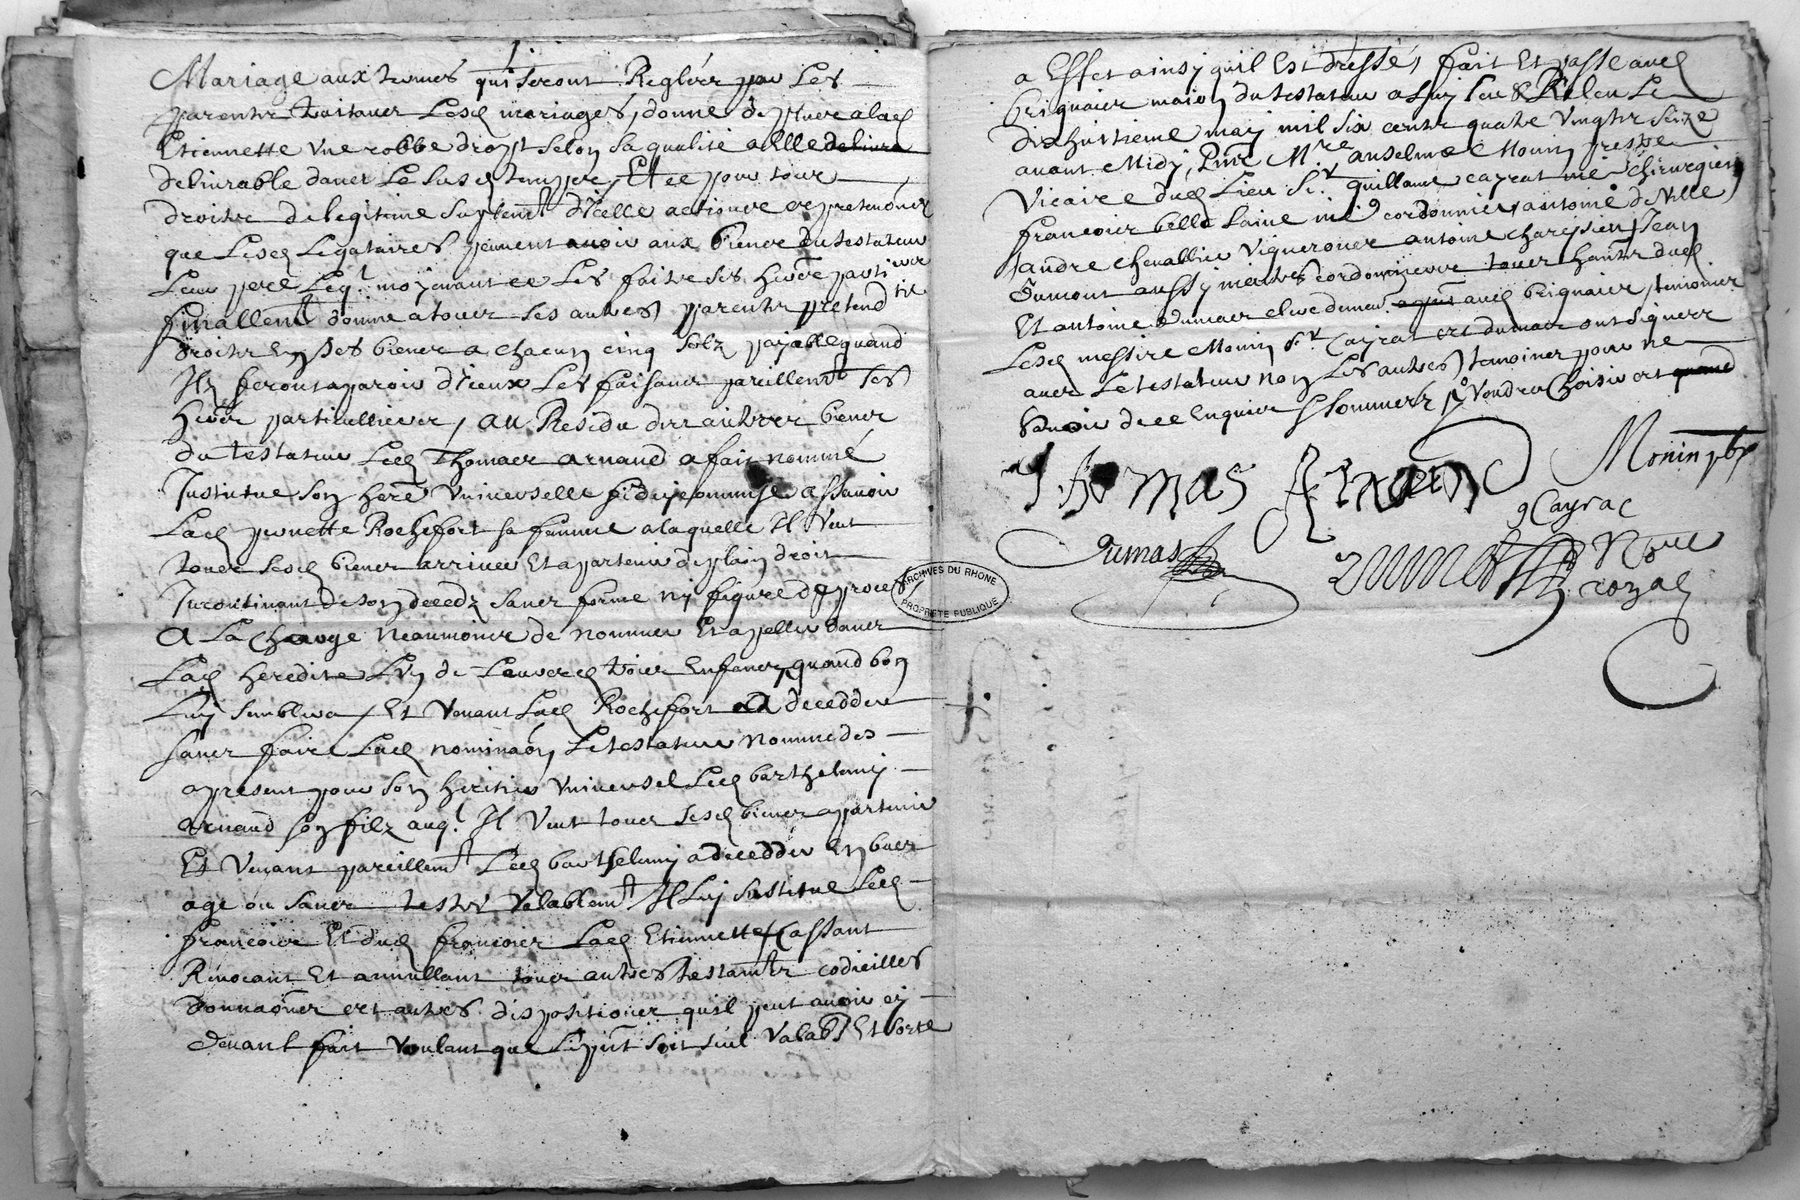 Mariage aux termes qui seront Reglées par Les
parentz traitaner Lesd mariages, donne de plus a lad
Etiennette Une robbe dropt selon sa qualité a elle
deliurable dans Le susd temps, Et ce pour tour
droitz de legitime suplemt d'Icelle actions et pretentions
que Lesd Legataires peuuent auoir aux biens du testateur
Leur pere Leql moyenant ce Les faits ses heres parti
finallemt donne a tous ses autres parentz pretend
droitz En ses biens a chacun cinq solz payable quand
Ilz feront aparoir d'Iceux Les faisant pareillemt ses
heres particulliers, au Residu des autres biens
du testateur Led Thomas arnaud a fait nommé
Institue son here Vniuerselle fideicommise assauoir
Lad pernette Rochefort sa femme a laquelle Il Veut
tous sesd biens arriuer Et apartenir de plain droit
Incontinant de son decedz sans forme ny figure de proces
a La charge neanmoins de nommer Et apeller dans
Lad heredite L'un de Leursd trois Enfans, quand bon
Luy semblera, Et Venant Lad Rochefort a deceddere
sans faire Lad nominaon Le testateur nomme des
apresent pour son heritier Vniuersel Led barthelemy
arnaud son filz auql Il Veut tous sesd biens apartenir
Et Venant pareillemt Led barthelemy a decedder En bas
age ou sans tester Valablemt Il Luy substitue Led
francois Et dud francois Lad Etiennette, Cassant
Reuocant Et annullant tous autres testamtz codicilles
donnaons et autres dispositions quil peut auoir cy
deuant fait Voulant que Le pnt soit seul Valable Et sorte
a Effet ainsy quil Est dressé, fait Et passe aud
brignaier maison du testateur a Luy Leu & Releu Le
dixhuitieme may mil six centz quatre Vingtz seize
auant Midy, pnt Mre anselme Monin prestre
Vicaire dud Lieu Sr guillaume cayrat me chirurgien
francois bella Laine me cordonnier, antoine deville
andre cheuallier Vignerons antoine charezieu, Jean
Dumont aussy mestres cordonniers tous habitz dud
Et antoine Dumas clerc demeurt aud brignaier, temoins
Lesd messire Monin Sr Cayrat et dumas ont signez
auec Le testateur non Les autres temoins pour ne
scauoir de ce Enquis Et sommez
Thomas Arnaud
Monin pbr
g Cayrac
Dumas
Nore
royal
ARCHIVES DU RHONE
PROPRIETE PUBLIQUE